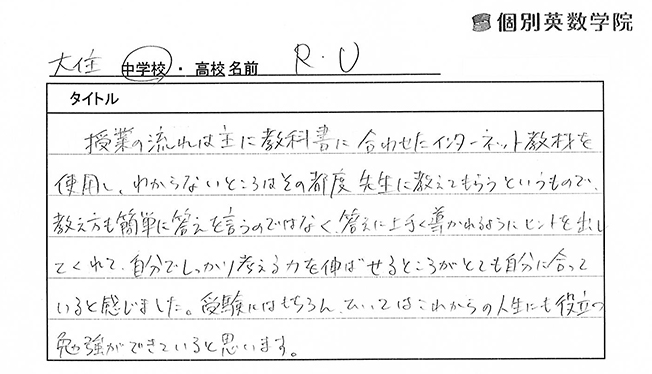 個別英数学院
大住 中学校・高校 名前 R.U
タイトル
授業の流れは主に教科書に合わせたインターネット教材を
使用し、わからないところはその都度先生に教えてもらうというもので、
教え方も簡単に答えを言うのではなく、答えに上手く導かれるようにヒントを出し
てくれて、自分でしっかり考える力を伸ばせるところがとても自分に合って
いると感じました。受験にはもちろん、ひいてはこれからの人生にも役立つ
勉強ができていると思います。